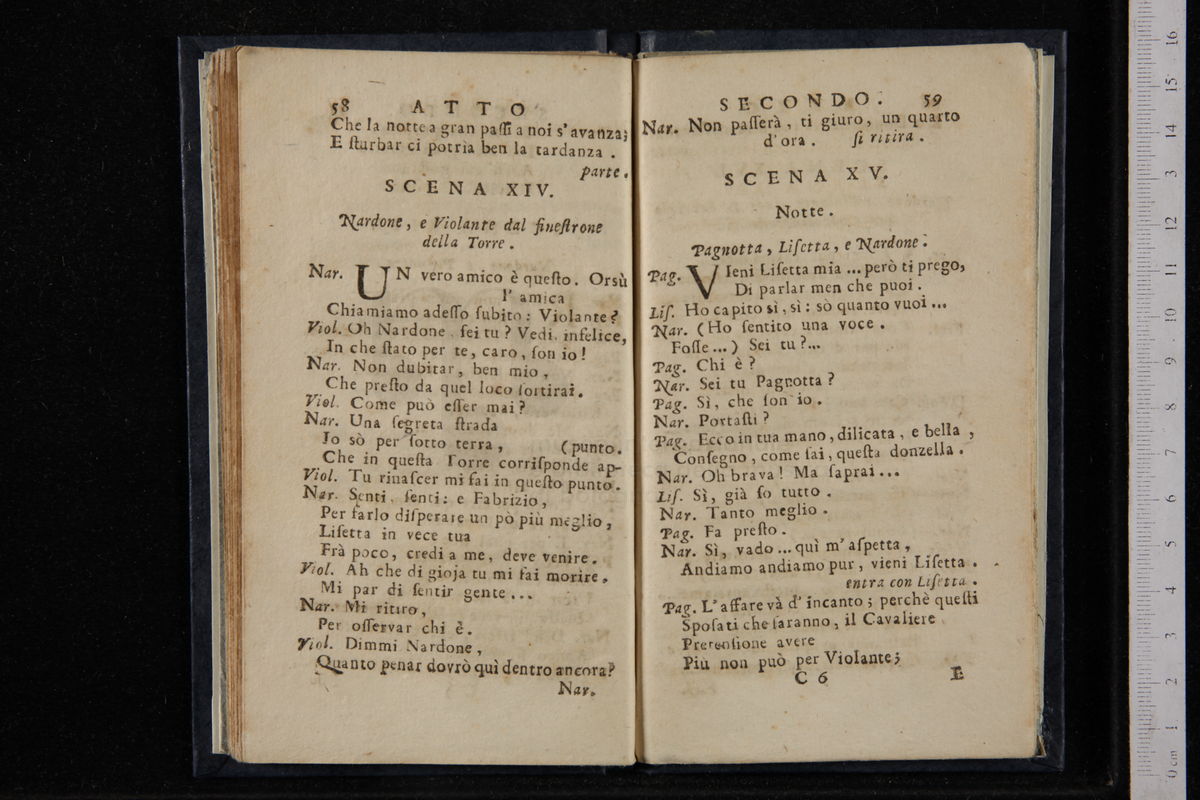 58 ATTO
Che la notte a gran paſſi a noi s'avanza;
E ſturbar ci potria ben la tardanza .
parte.
SCENA XIV.
Nardone, e Violante dal fineſtrone
della Torre .
Nar. UN vero amico è queſto. Orsù
l' amica
Chiamiamo adeſſo ſubito: Violante?
Viol. Oh Nardone, ſei tu? Vedi, infelice,
In che ſtato per te, caro, ſon io!
Nar. Non dubitar, ben mio,
Che preſto da quel loco ſortirai.
Viol. Come può eſſer mai?
Nar. Una ſegreta ſtrada
Io sò per ſotto terra, (punto.
Che in queſta Torre corriſponde ap-
Viol. Tu rinaſcer mi fai in queſto punto.
Nar. Senti, ſenti: e Fabrizio,
Per farlo diſperare un pò più meglio,
Liſetta in vece tua
Frà poco, credi a me, deve venire.
Viol. Ah che di gioja tu mi fai morire.
Mi par di ſentir gente...
Nar. Mi ritiro,
Per oſſervar chi è.
Viol. Dimmi Nardone,
Quanto penar dovrò quì dentro ancora?
Nar.
SECONDO. 59
Nar. Non paſſerà, ti giuro, un quarto
d'ora. ſi ritira.
SCENA XV.
Notte.
Pagnotta, Liſetta, e Nardone.
Pag. VIeni Liſetta mia... però ti prego,
Di parlar men che puoi.
Liſ. Ho capito sì, sì: sò quanto vuoi...
Nar. (Ho ſentito una voce.
Foſſe...) Sei tu?...
Pag. Chi è?
Nar. Sei tu Pagnotta?
Pag. Sì, che ſon io.
Nar. Portaſti?
Pag. Ecco in tua mano, dilicata, e bella,
Conſegno, come ſai, queſta donzella.
Nar. Oh brava! Ma ſaprai...
Liſ. Sì, già ſo tutto.
Nar. Tanto meglio.
Pag. Fa preſto.
Nar. Sì, vado... quì m'aſpetta,
Andiamo andiamo pur, vieni Liſetta.
entra con Liſetta.
Pag. L'affare và d'incanto; perchè queſti
Spoſati che ſaranno, il Cavaliere
Pretenſione avere
Più non può per Violante;
C 6 E
16
15
14
13
12
11
10
9
8
7
6
5
4
3
2
1
0 cm